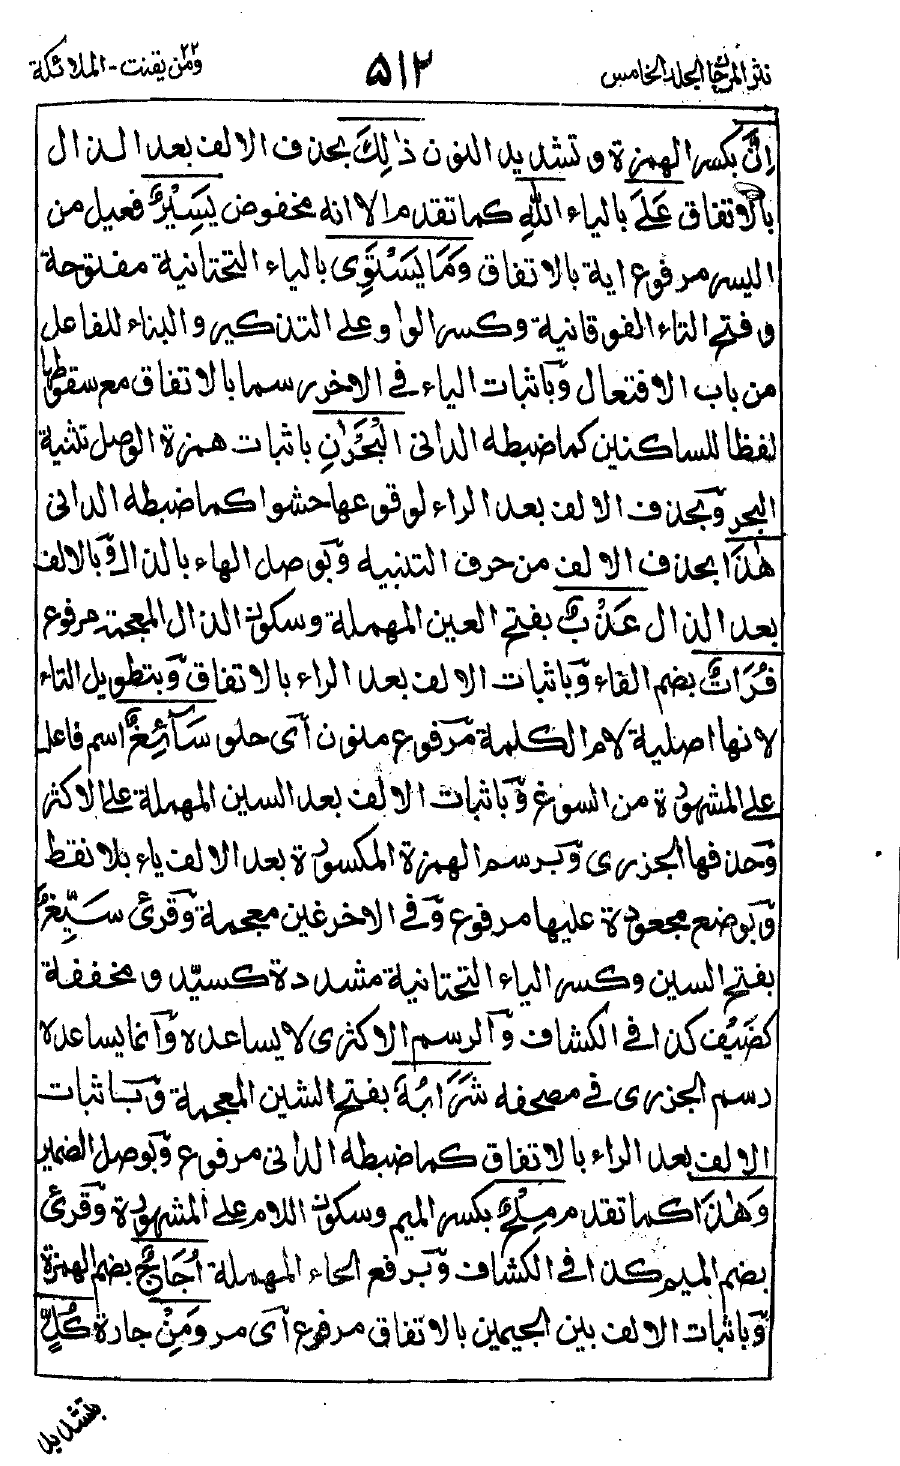 نثر المرجان المجلد الخامس
۵۱۲
ومن يقنت ۲۲ - الملائكة
اِنَّ بكسر الهمزة و تشديد النون ذٰلِكَ بحذف الالف بعد الذال
بالاتفاق عَلَى بالياء اللّٰهِ كما تقدم الا انه مخفوض يَسِيْرٌ فعيل من
اليسر مرفوع اية بالاتفاق وَمَا يَسْتَوِى بالياء التحتانية مفتوحة
و فتح التاء الفوقانية وكسر الواو على التذكير والبناء للفاعل
من باب الافتعال وَباثبات الياء فى الاخر رسما بالاتفاق مع سقوطها
لفظا للساكنين كما ضبطه الدانى الْبَحْرٰنِ باثبات همزة الوصل تثنية
البحر وَبحذف الالف بعد الراء لوقوعها حشوا كما ضبطه الدانى
هٰذَا بحذف الالف من حرف التنبيه وَبوصل الهاء بالذال وَبالالف
بعد الذال عَذْبٌ بفتح العين المهملة وسكون الذال المعجمة مرفوع
فُرَاتٌ بضم الفاء وَباثبات الالف بعد الراء بالاتفاق وَبتطويل التاء
لانها اصلية لام الكلمة مَرفوع منون اَى حلو سَآئِغٌ اسم فاعل
على المشهورة من السوغ وَباثبات الالف بعد السين المهملة على الاكثر
وَحذفها الجزرى وَبرسم الهمزة المكسورة بعد الالف ياء بلا نقط
وَبوضع مجعودة عليها مرفوع وَفى الاخر غين معجمة وَقرئ سَيِّغٌ
بفتح السين وكسر الياء التحتانية مشددة كسيّد و مخففة
كضَيْف كذا فى الكشاف وَالرسم الاكثرى لا يساعده وَانما يساعده
رسم الجزرى فى مصحفه شَرَابُهٗ بفتح الشين المعجمة وَباثبات
الالف بعد الراء بالاتفاق كما ضبطه الدانى مرفوع وَبوصل الضمير
وَهٰذَا كما تقدم مِلْحٌ بكسر الميم وسكون اللام على المشهورة وَقرئ
بضم الميم كذا فى الكشاف وَبرفع الحاء المهملة اُجَاجٌ بضم الهمزة
وَباثبات الالف بين الجيمين بالاتفاق مرفوع اَى مر وَمِنْ جارة كُلٍّ
بتشديد